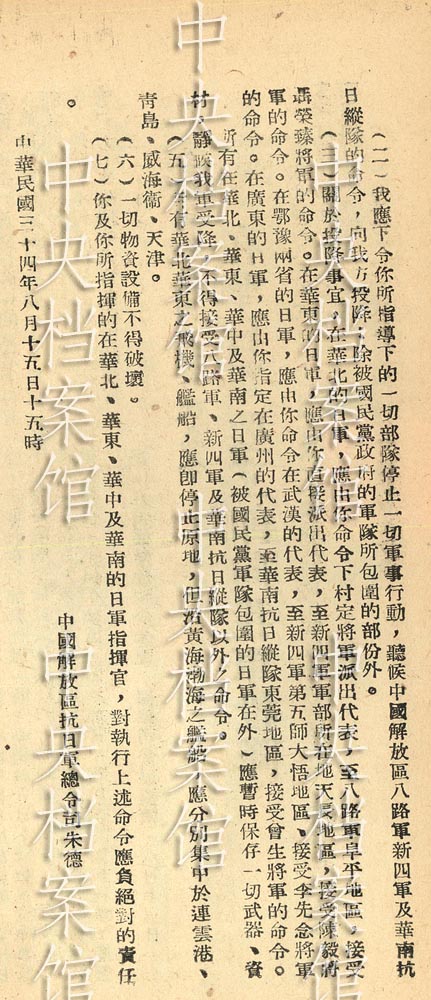 （二）我應下令你所指導下的一切部隊停止一切軍事行動，聽候中國解放區八路軍新四軍及華南抗
日縱隊的命令，向我方投降，除被國民黨政府的軍隊所包圍的部份外。
（三）關於投降事宜，在華北的日軍，應由你命令下村定將軍派出代表，至八路軍阜平地區，接受
聶榮臻將軍的命令。在華東的日軍，應由你直接派出代表，至新四軍軍部所在地天長地區，接受陳毅將
軍的命令。在鄂豫兩省的日軍，應由你命令在武漢的代表，至新四軍第五師大悟地區、接受李先念將軍
的命令。在廣東的日軍，應由你指定在廣州的代表，至華南抗日縱隊東莞地區，接受曾生將軍的命令。
所有在華北、華東、華中及華南之日軍（被國民黨軍隊包圍的日軍在外）應暫時保存一切武器、資
材，靜候我軍受降，不得接受八路軍、新四軍及華南抗日縱隊以外之命令。
（五）所有華北華東之飛機、艦船，應即停止原地，但沿黃海渤海之艦船，應分別集中於連雲港、
青島、威海衛、天津。
（六）一切物資設備不得破壞。
（七）你及你所指揮的在華北、華東、華中及華南的日軍指揮官，對執行上述命令應負絕對的責任
。
中國解放區抗日軍總令司朱德
中華民國三十四年八月十五日十五時
中央档案馆
中央档案馆
中央档案馆
中央档案馆
中央档案馆
中央档案馆